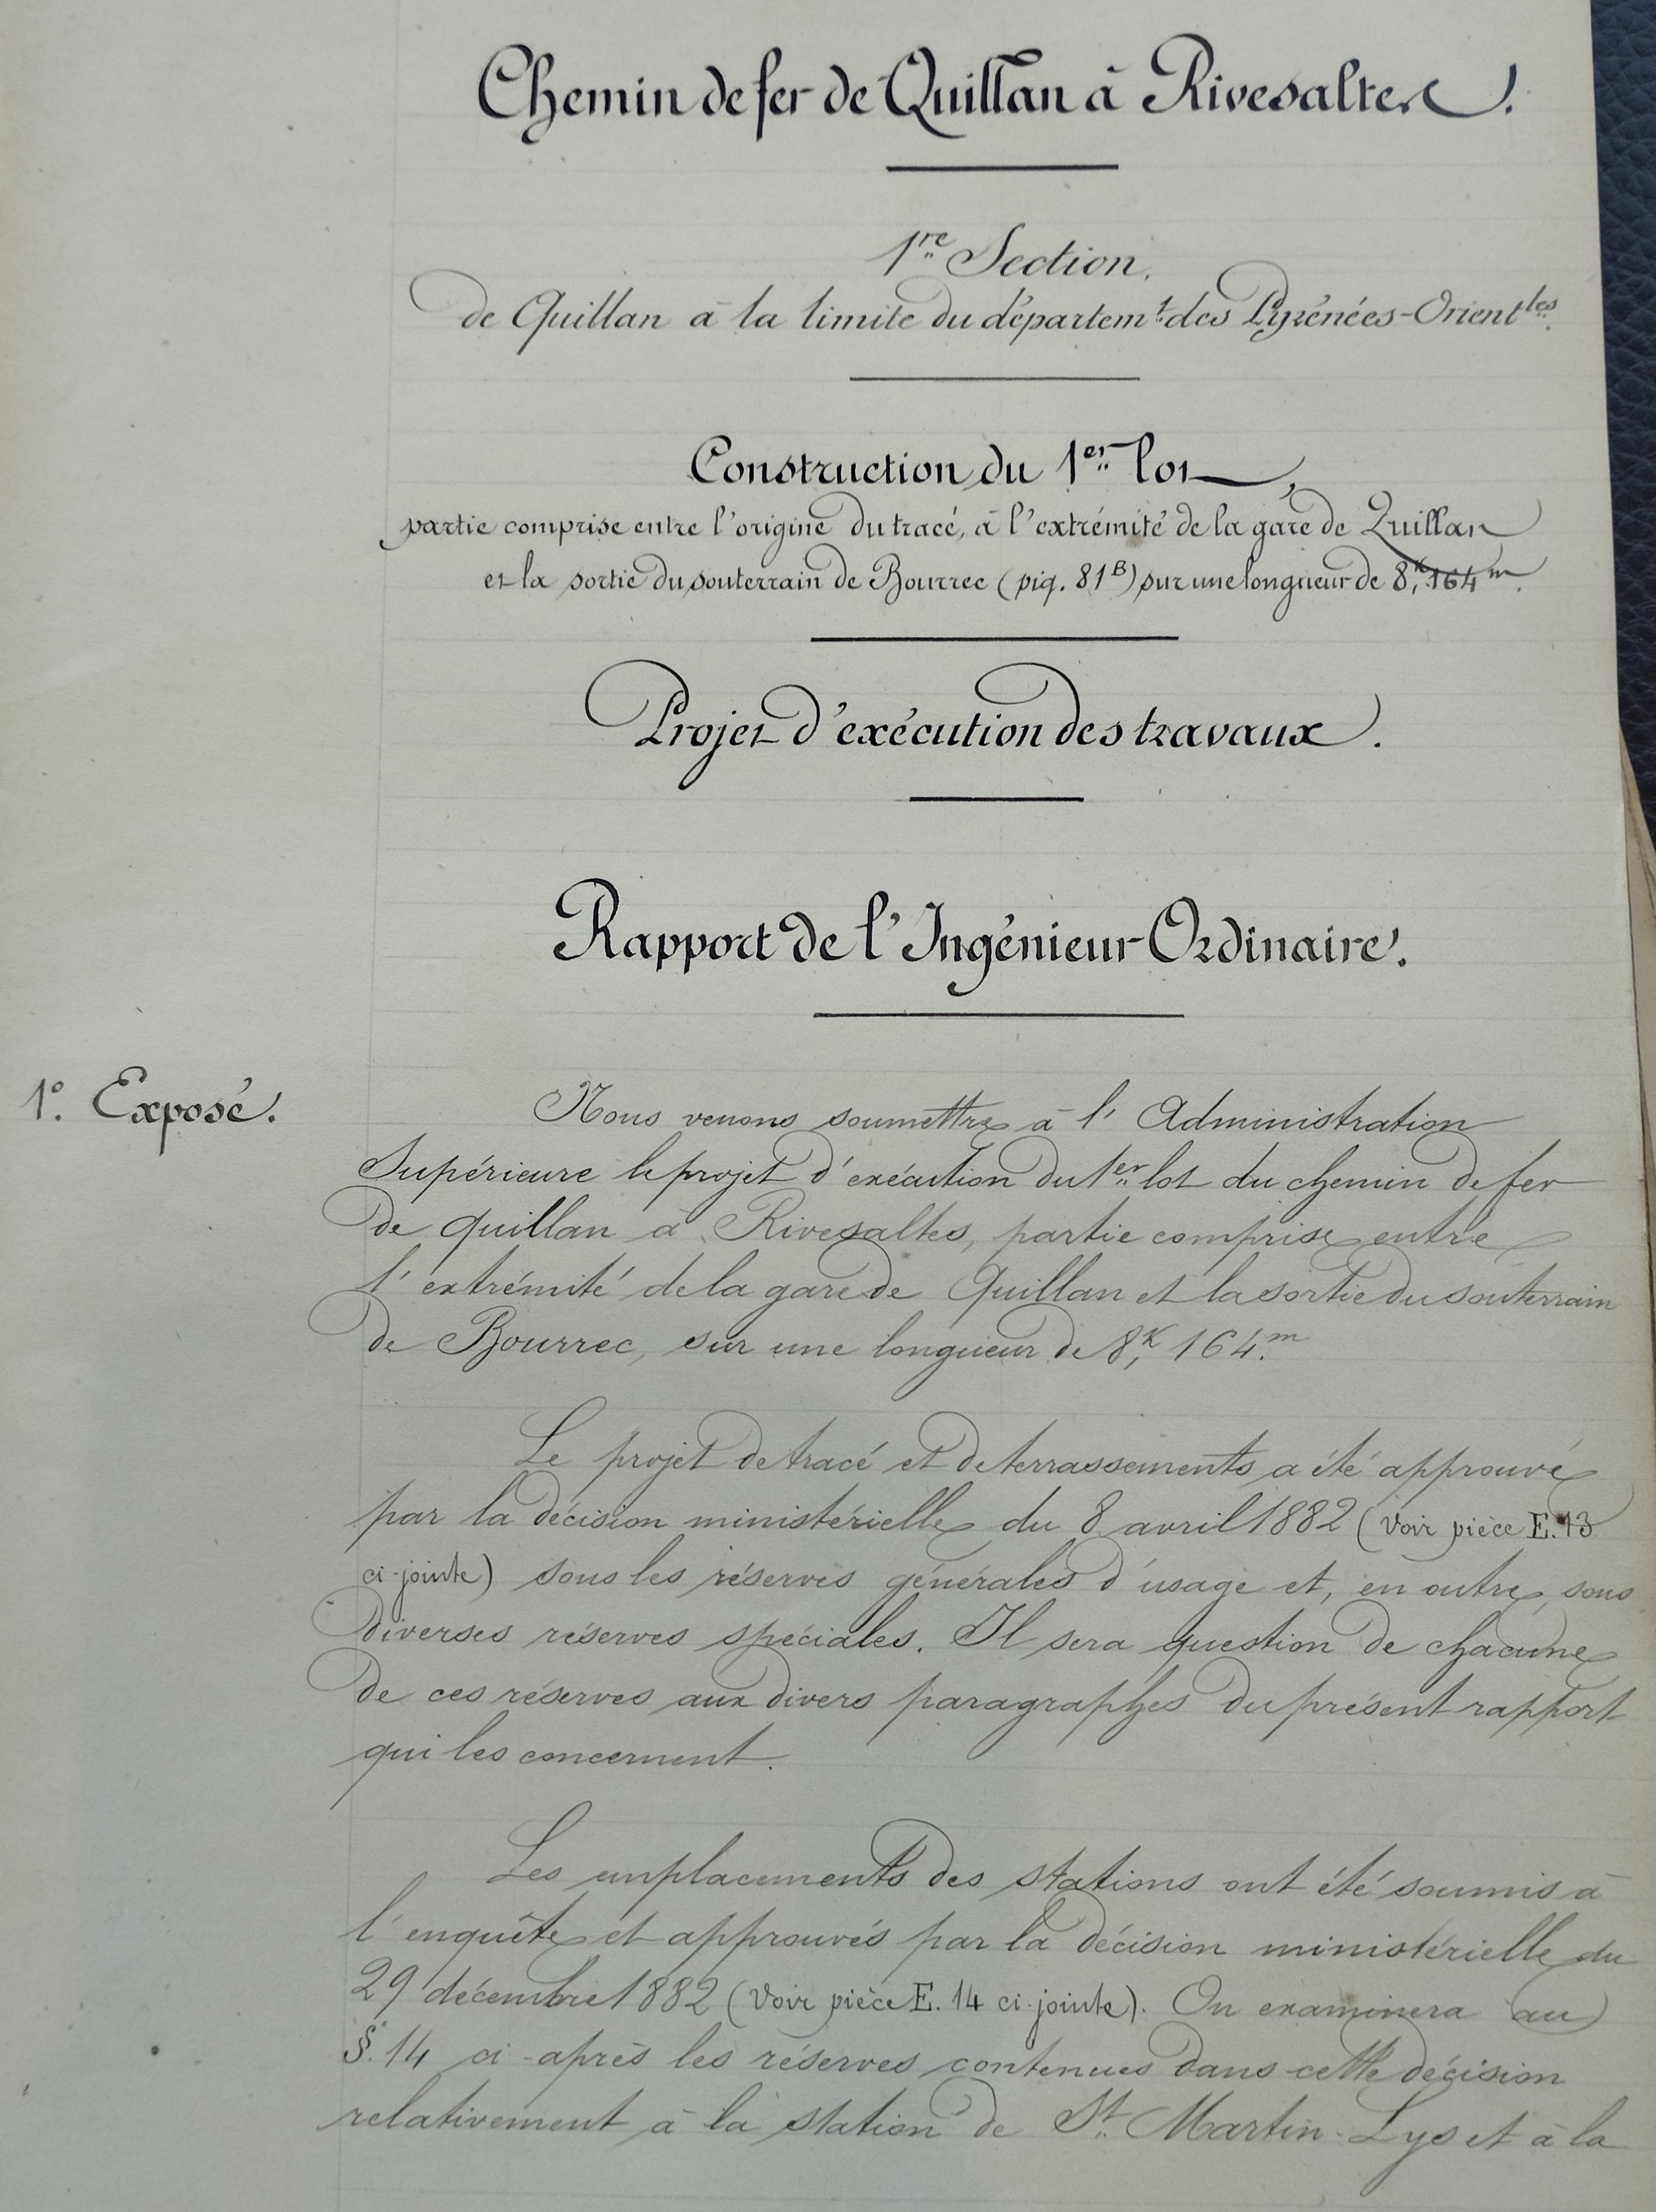 Chemin de fer de Quillan à Rivesaltes.
1re Section.
de Quillan à la limite du départemt des Pyrénées-Orientles.
Construction du 1er lot,
partie comprise entre l'origine du tracé, à l'extrémité de la gare de Quillan
et la sortie du souterrain de Bourrec (piq. 81B) sur une longueur de 8k,164m.
Projet d'exécution des travaux.
Rapport de l'Ingénieur Ordinaire.
1°. Exposé.
Nous venons soumettre à l'Administration
Supérieure le projet d'exécution du 1er lot du chemin de fer
de Quillan à Rivesaltes, partie comprise entre
l'extrémité de la gare de Quillan et la sortie du souterrain
de Bourrec, sur une longueur de 8k,164m
Le projet de tracé et de terrassements a été approuvé
par la décision ministérielle du 8 avril 1882 (Voir pièce E.13
ci-jointe) sous les réserves générales d'usage et, en outre, sous
diverses réserves spéciales. Il sera question de chacune
de ces réserves aux divers paragraphes du présent rapport
qui les concernent.
Les emplacements des stations ont été soumis à
l'enquête et approuvés par la décision ministérielle du
29 décembre 1882 (Voir pièce E. 14 ci-jointe). On examinera au
§. 14 ci-après les réserves contenues dans cette décision
relativement à la station de St. Martin-Lys et à la